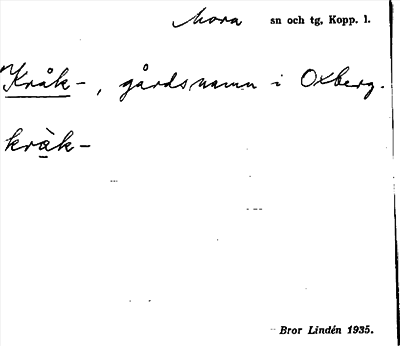 Mora sn och tg, Kopp. l.
Kråk-, gårdsnamn i Oxberg.
kråk-
Bror Lindén 1935.